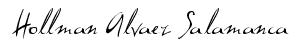 Hollman Alvaez Salamanca